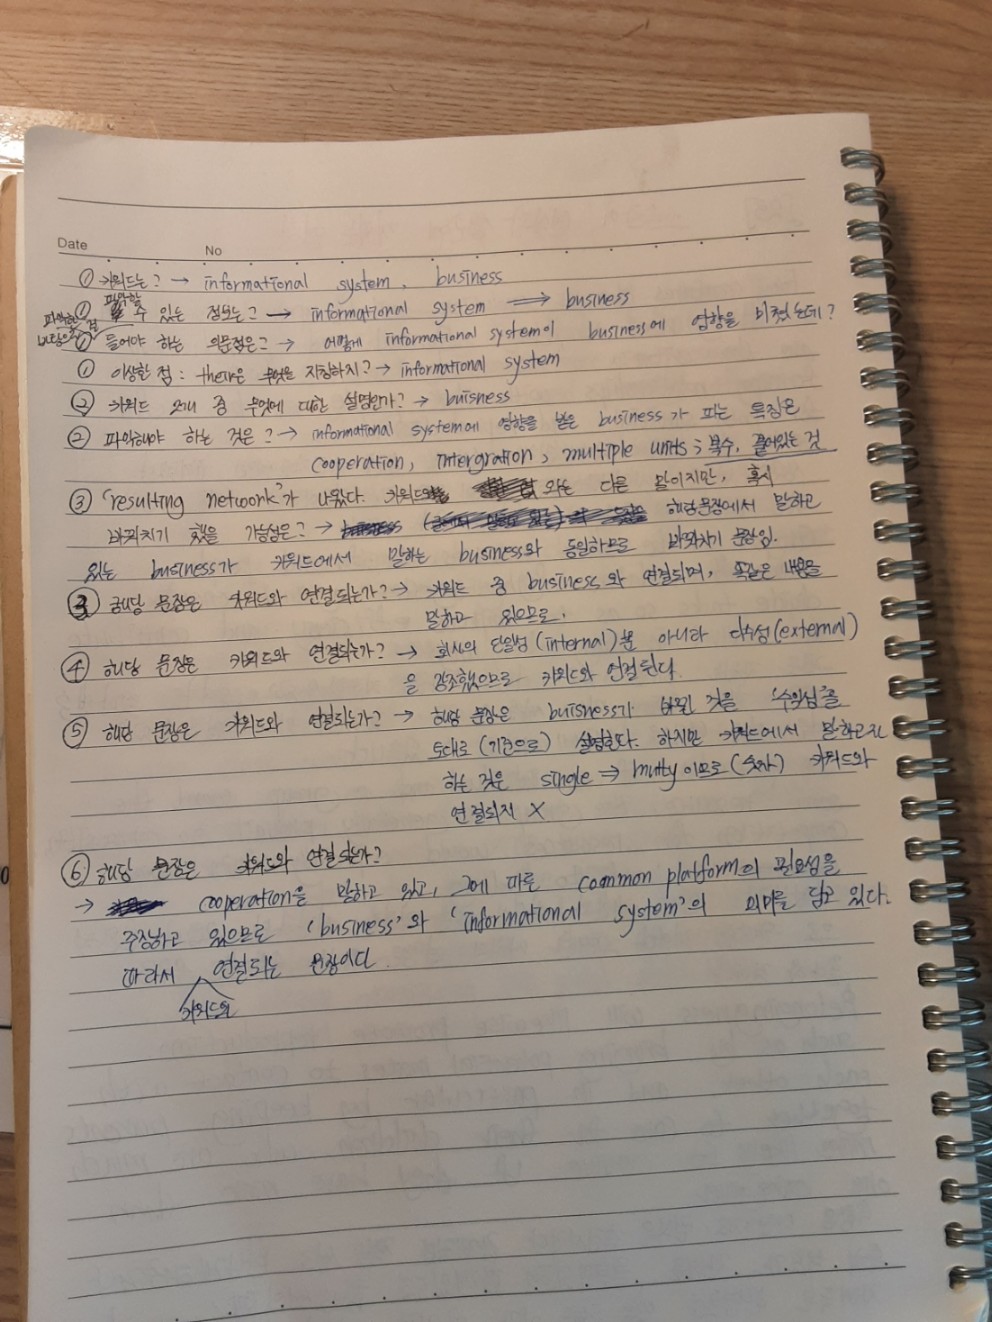 Date No
① 키워드는? → informational system, business
파악할
① 수 있는 정보는? → informational system ⟹ business
파악한
내용으로
② 들어야 하는 의문점은? → 어떻게 informational system이 business에 영향을 미쳤는데?
① 이상한 점 : their은 무엇을 지칭하지? → informational system
② 키워드 2개 중 무엇에 대한 설명인가? → buisness
② 파악해야 하는 것은? → informational system에 영향을 받은 business가 띠는 특징은
cooperation, intergration, multiple units ; 복수, 끌어있는 것
③ 'resulting network'가 나왔다. 키워드 와는 다른 말이지만, 혹시
바꿔치기 했을 가능성은? → 해당 문장에서 말하고
있는 business가 키워드에서 말하는 business와 동일하므로 바꿔치기 문장임.
③ 해당 문장은 키워드와 연결되는가? → 키워드 중 business와 연결되며, 똑같은 내용을
말하고 있으므로.
④ 해당 문장은 키워드와 연결되는가? → 회사의 단일성(internal)뿐 아니라 다수성(external)
을 강조했으므로 키워드와 연결된다.
⑤ 해당 문장은 키워드와 연결되는가? → 해당 문장은 buisness가 된 것을 '수익성'을
토대로 (기준으로) 설명한다. 하지만 키워드에서 말하고자
하는 것은 single → mutty이므로 (숫자) 키워드와
연결되지 X
⑥ 해당 문장은 키워드와 연결되는가?
→ cooperation을 말하고 있고, 그에 따른 common platform의 필요성을
주장하고 있으므로 'business'와 'informational system'의 의미를 담고 있다.
따라서 연결되는 문장이다.
키워드와